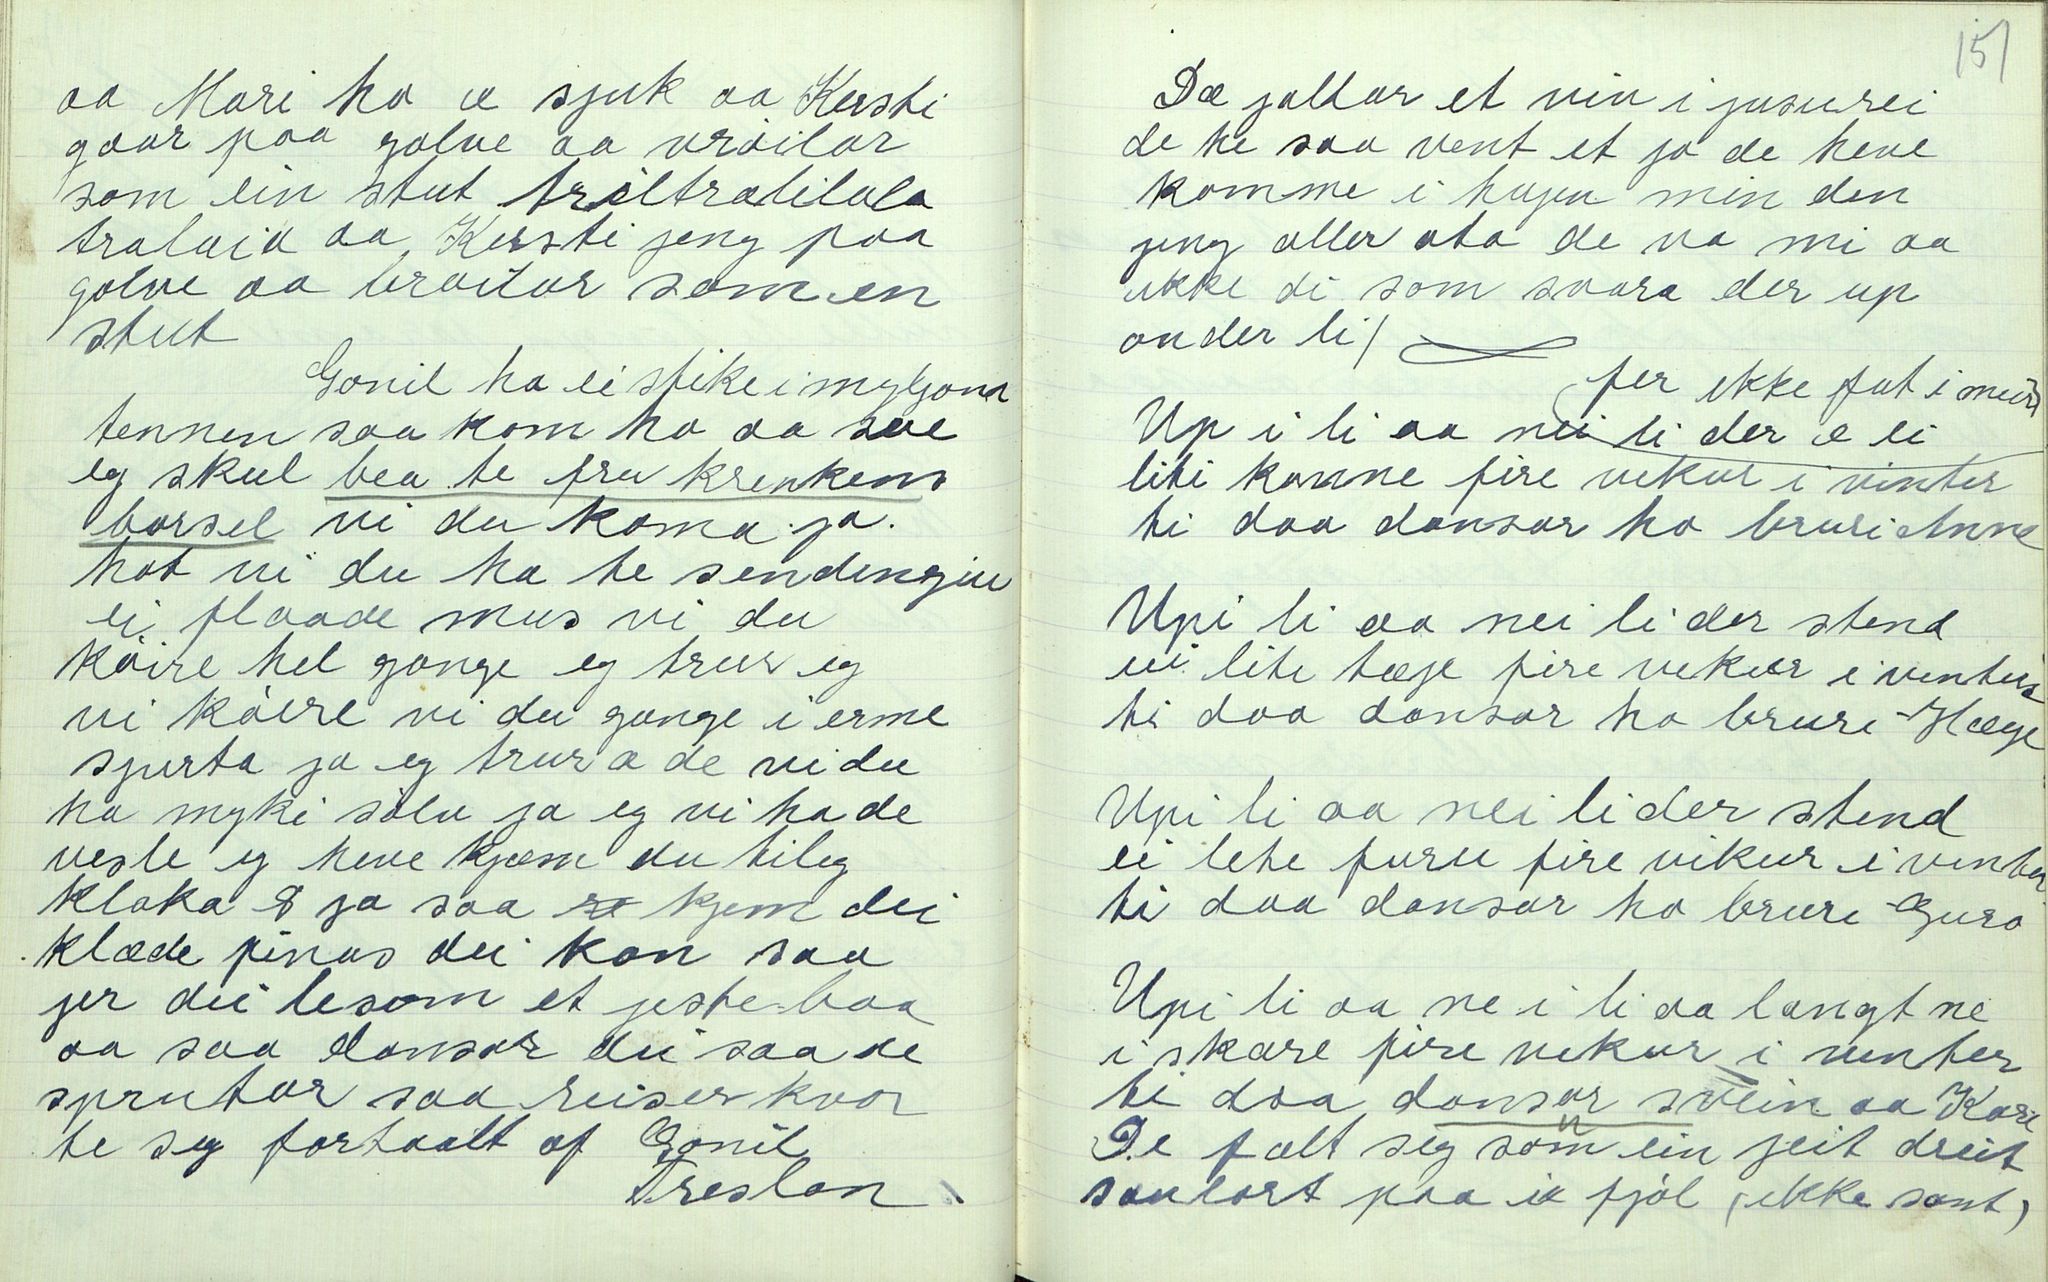 aa Mari ho æ sjuk aa Kersti
gaar paa golve aa vråilar
som ein stut triltralilala
tralaia aa Kersti jeng paa
golve aa braular som en
stut
Gonil ha ei stike i mylgona
tennen saa kom ho aa sae
eg skul bea te fru krenkens
barsel vi du koma ja.
hot vi du ha te sendengju
ei flaade mus vi du
kåire hel gonge eg trur eg
vi kåire vi du gonge i erme
sjurta ja eg trur a de vi du
ha myki sølv ja eg vi ha de
vesle eg heve kjæm du tileg
klaka 8 ja saa kjem dei
klæde pinas dei kan saa
jer dei lesom et jestebaa
aa saa dansar dei saa de
sprutar saa reiser kvar
te seg fortaalt af Gonil
Treslan
151
Dæ jaltar et vin i jusurei
de ke saa vent et jo de heve
komme i hugen min den
jeng aller ata de va mi aa
ikke di som svara der up
onder li)
(fer ikke fut i mein)
Up i li aa nei li der æ ei
liti konne fire vekur i vinter
ti daa dansar ho bruri Anne
Upi li aa nei li der stend
ei lite tæge fire vekur i vinter
ti daa dansar ho brure Hæge
Upi li aa nei li der stend
ei lete furu fire vikur i vinter
ti daa dansar ho brure Guro
Upi li aa ne i li aa langt ne
i skare fire vekur i venter
ti daa dansar svein aa Kari
De falt seg som ein jeit dreit
saulort paa ei fjöl (ikke sant)